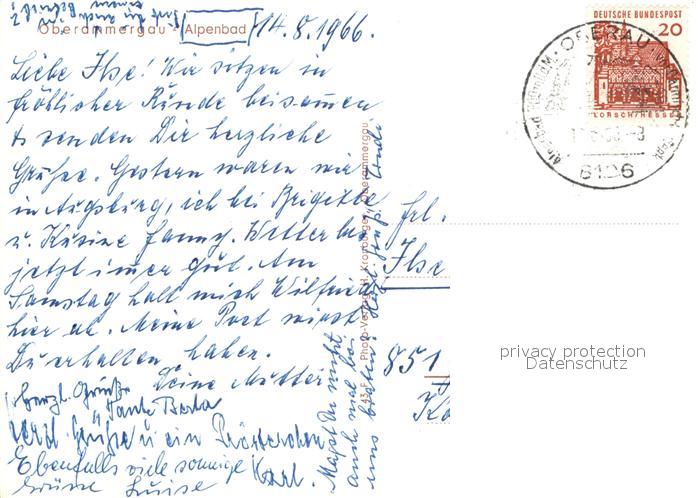 Oberammergau - Alpenbad 14.8.1966.
Liebe Ilse! Wir sitzen in
fröhlicher Runde beisammen
u. senden Dir herzliche
Grüsse. Gestern waren wir
in Augsburg, ich bei Brigitte
u. Kusine Fanny. Wetter bis
jetzt immer gut. Am
Samstag holt mich Wilfried
hier ab. Meine Post wirst
Du erhalten haben.
Deine Mutter
herzl. Grüße
Tante Berta
Herzl. Grüße u ein
Karl.
Ebenfalls viele sonnige
Grüße Luise
Magst Du nicht
auch mal bei
uns
Photo-Verlag H. Kronburger, Oberammergau
DEUTSCHE BUNDESPOST
20
LORSCH/HESSEN
OBERAU
6106
Frl.
Ilse
851
privacy protection
Datenschutz